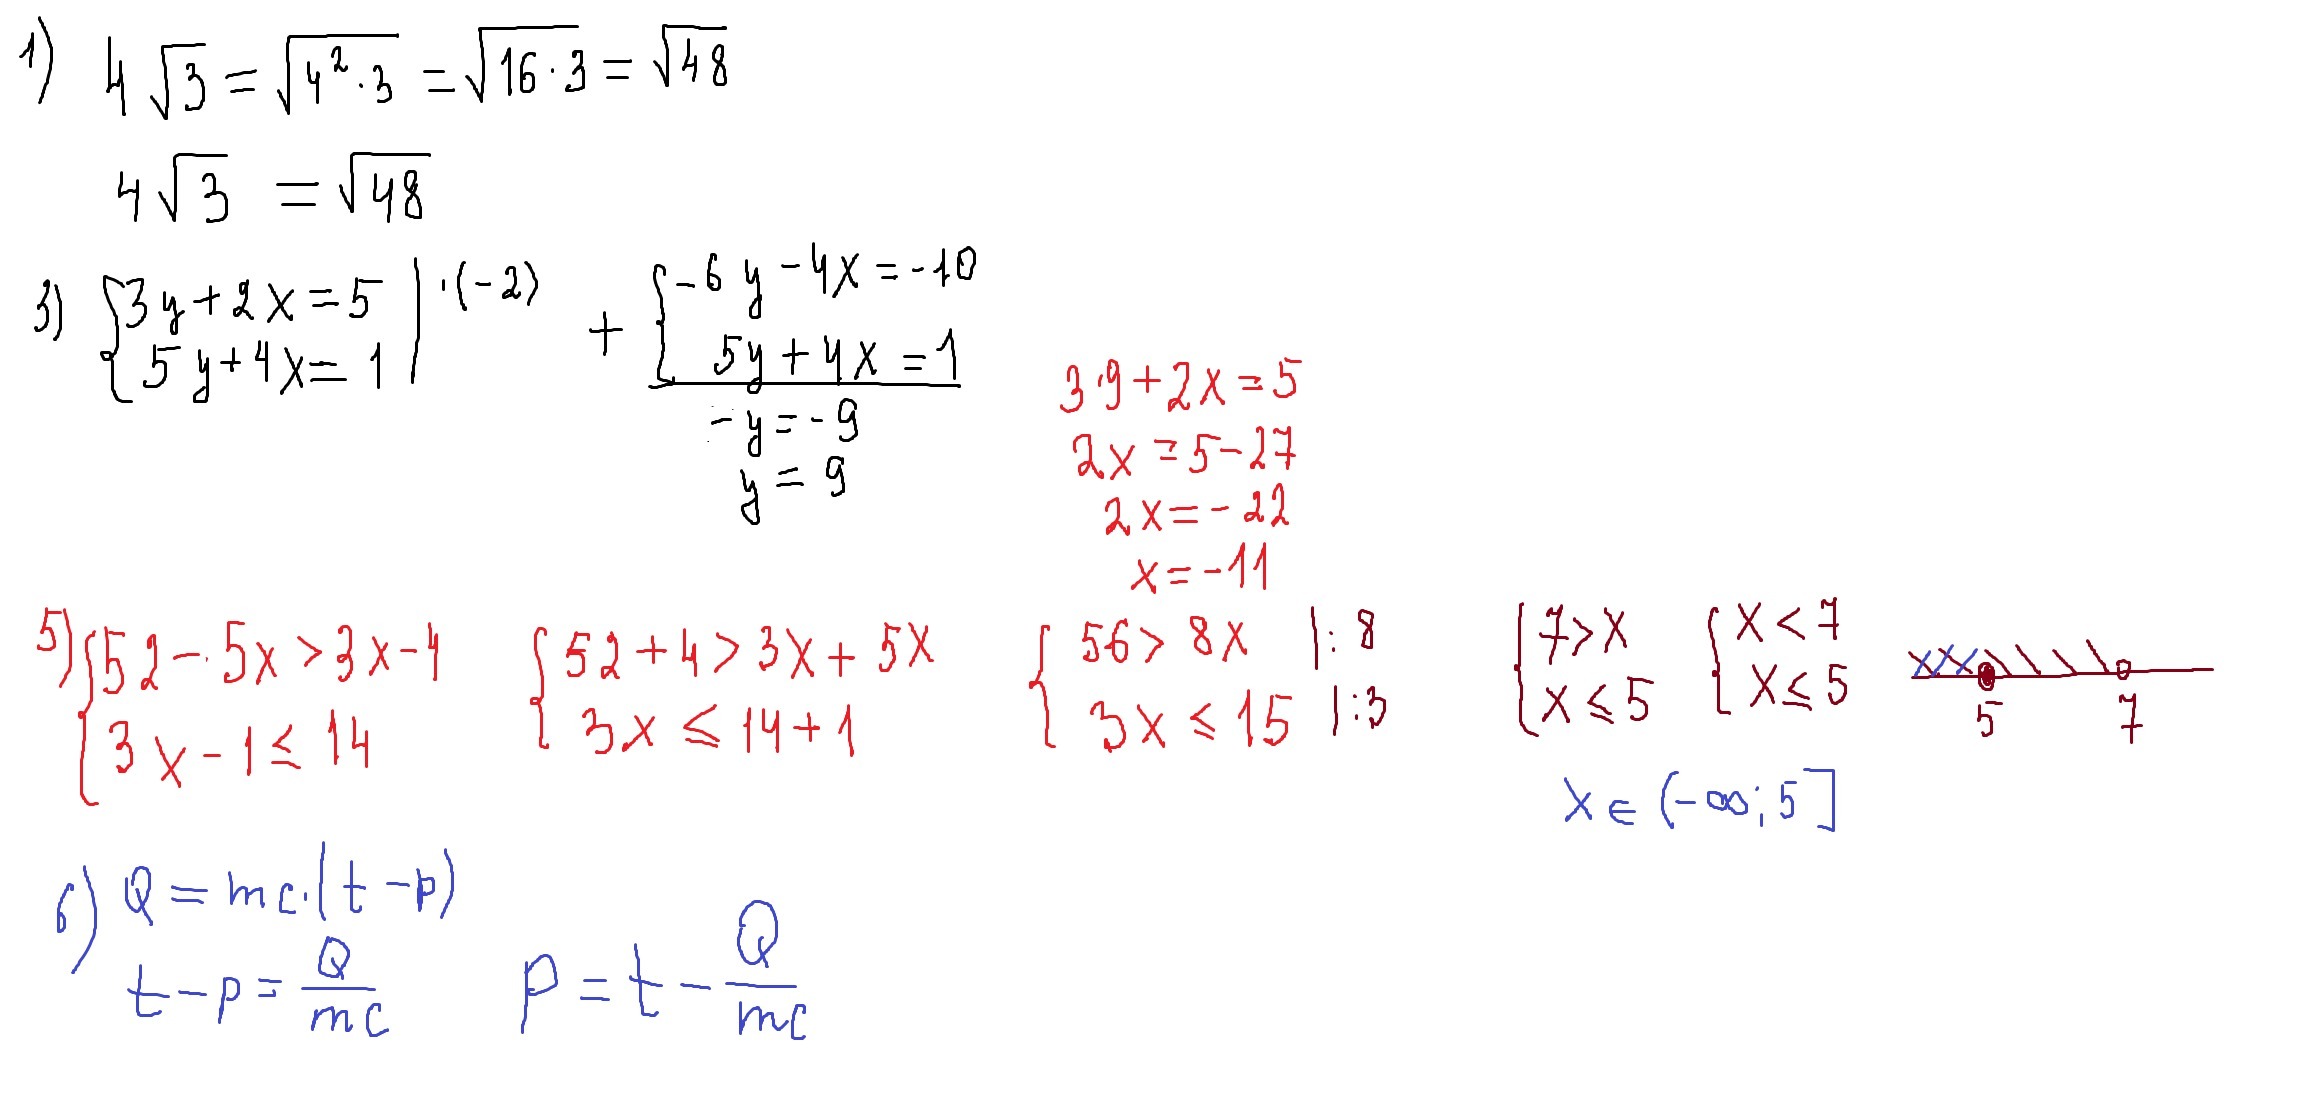 1) 4√3 = √4²·3 = √16·3 = √48
4√3 = √48
3) { 3y+2x=5 | ·(-2)
5y+4x=1
+ { -6y-4x=-10
5y+4x=1
-y=-9
y=9
3·9+2x=5
2x=5-27
2x=-22
x=-11
5) { 52-5x>3x-4
3x-1≤14
{ 52+4>3x+5x
3x≤14+1
{ 56>8x |:8
3x≤15 |:3
{ 7>x
x≤5
{ x<7
x≤5
5 7
x∈(-∞;5]
6) Q=mc·(t-p)
t-p=Q/mc
p=t-Q/mc